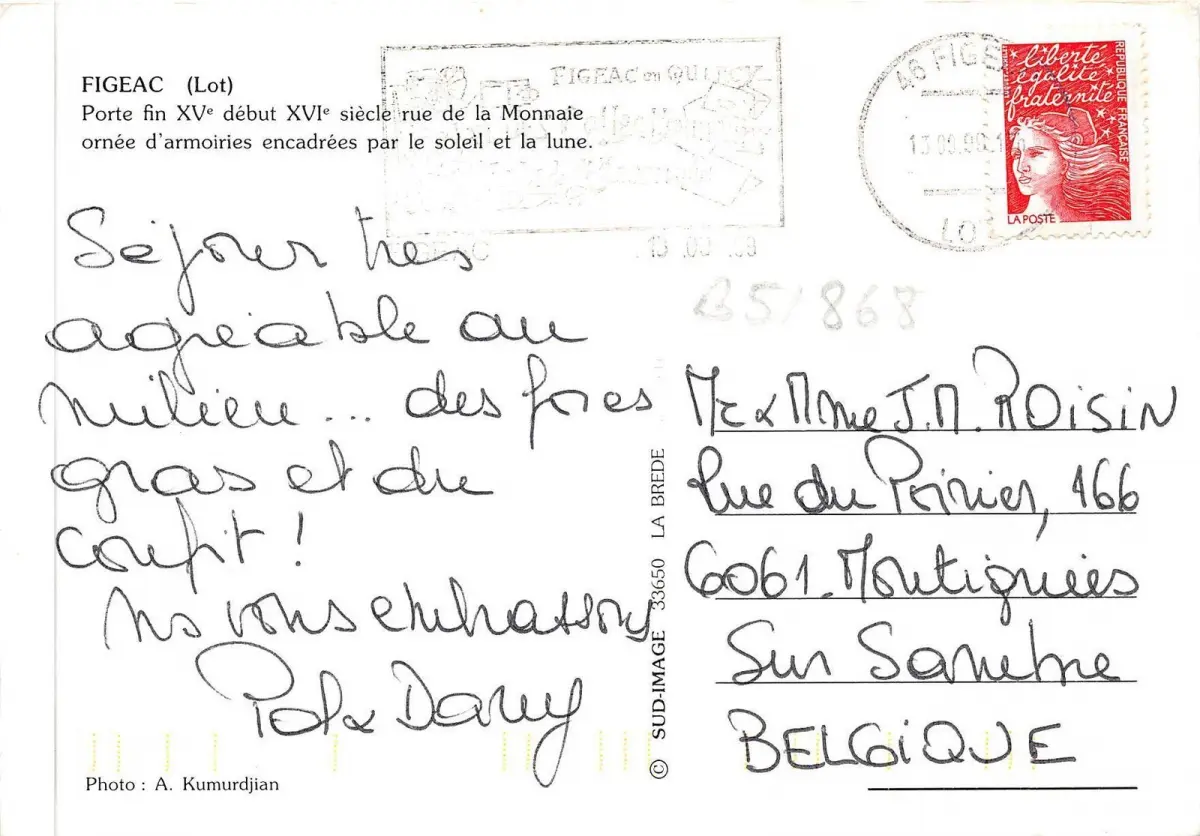 FIGEAC (Lot)
Porte fin XVe début XVIe siècle rue de la Monnaie
ornée d'armoiries encadrées par le soleil et la lune.
FIGEAC en QUERCY
FIGEAC
46 FIGEAC
LOT
liberté
égalité
fraternité
RÉPUBLIQUE FRANÇAISE
LA POSTE
B51868
Séjour très
agréable au
milieu... des foies
gras et du
confit !
Ns vous embrassons
Pol & Dany
Mr & Mme J.M. ROISIN
Rue du Poirier, 166
6061. Montignies
Sur Sambre
BELGIQUE
© SUD-IMAGE 33650 LA BREDE
Photo : A. Kumurdjian